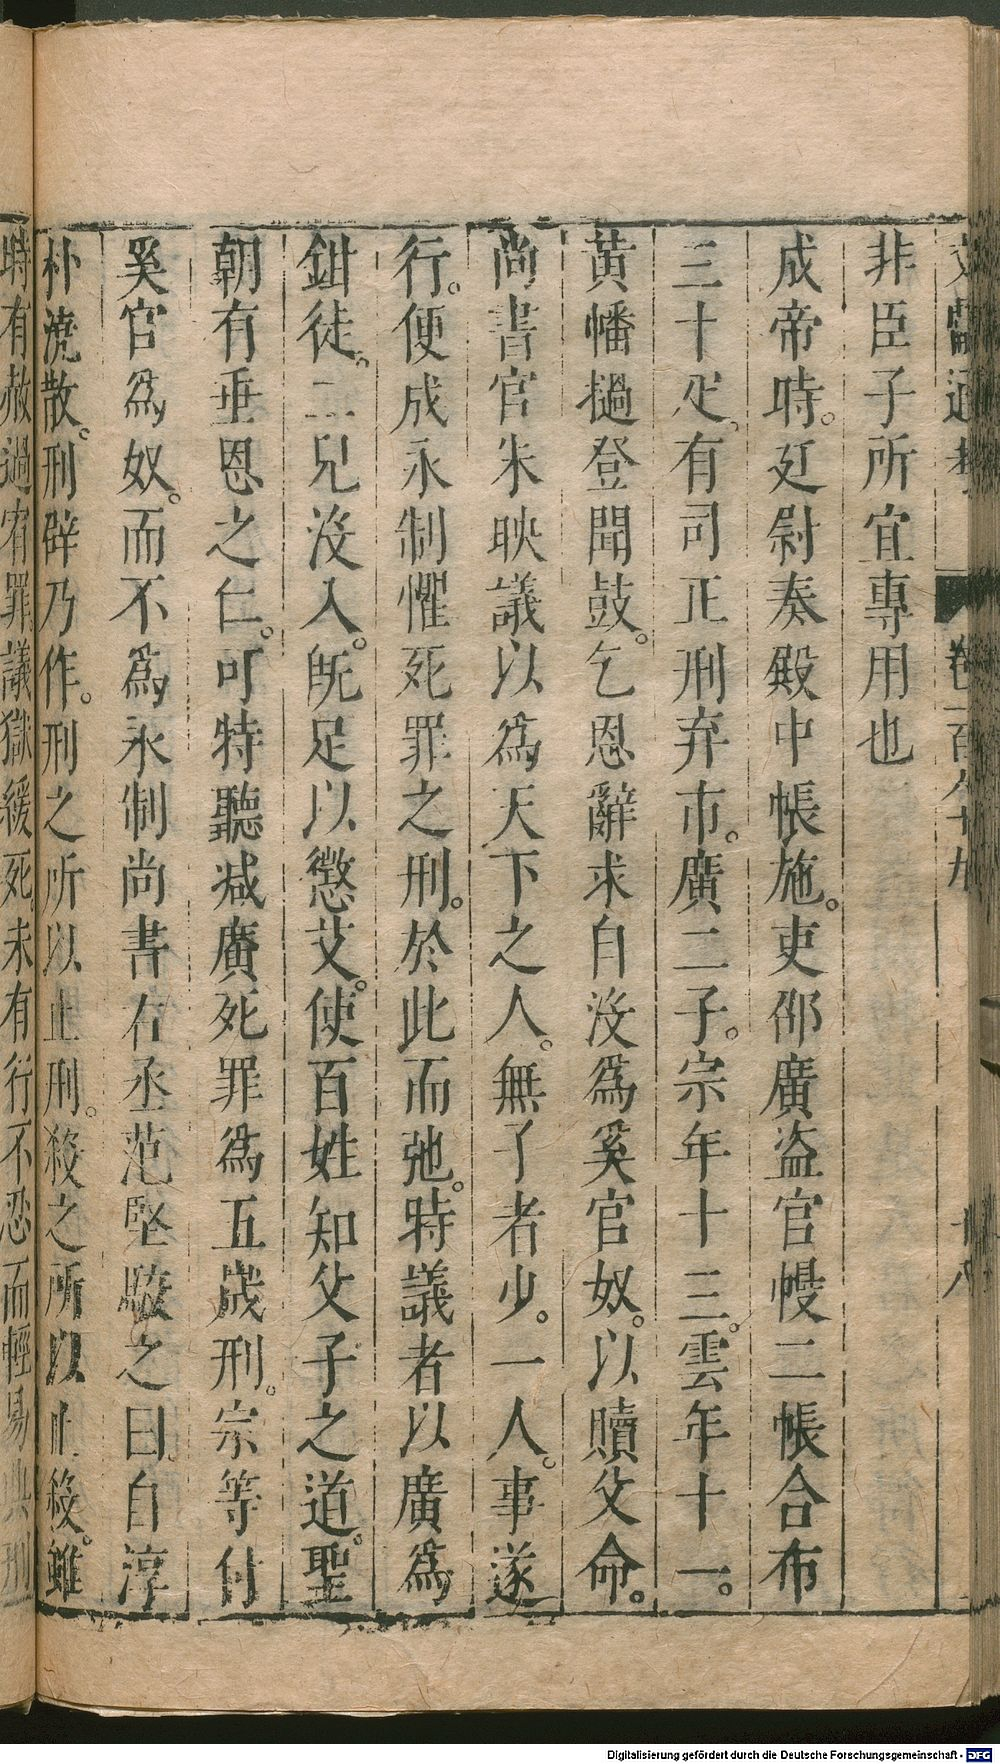 文獻通考 卷一百六十九 十八
非臣子所宜專用也
成帝時。廷尉奏殿中帳施。吏邵廣盗官幔二帳合布
三十疋。有司正刑弃市。廣二子。宗年十三。雲年十一。
黃幡撾登聞鼓。乞恩辭求自沒爲奚官奴。以贖父命。
尚書官朱映議以爲天下之人。無了者少。一人。事遂
行。便成永制懼死罪之刑。於此而弛。時議者以廣爲
鉗徒。二兒沒入。旣足以懲艾。使百姓知父子之道。聖
朝有垂恩之仁。可特聽减廣死罪爲五歲刑。宗等付
奚官爲奴。而不爲永制尚書右丞范堅駮之曰。自淳
朴澆散。刑辟乃作。刑之所以止刑。殺之所以止殺。雖
時有赦過宥罪。議獄緩死。未有行不忍而輕易典刑
Digitalisierung gefördert durch die Deutsche Forschungsgemeinschaft - DFG